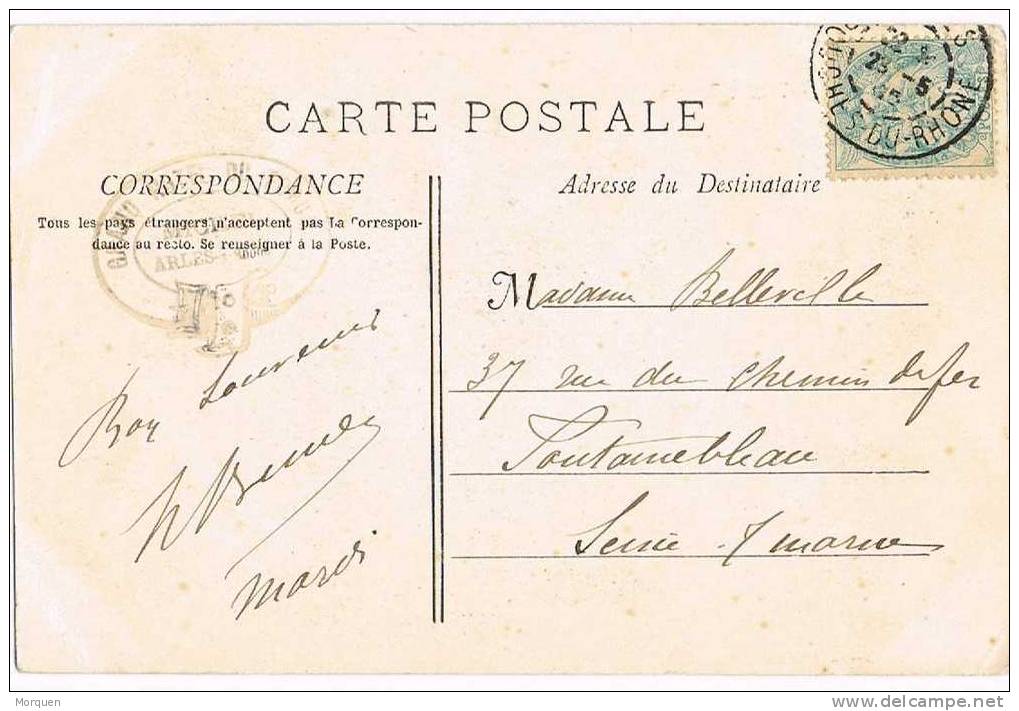 CARTE POSTALE
CORRESPONDANCE
Tous les pays étrangers n'acceptent pas la Correspon-
dance au recto. Se renseigner à la Poste.
Adresse du Destinataire
ARLES
BOUCHES-DU-RHONE
Madame Belleville
37 rue du Chemin de fer
Fontainebleau
Seine & marne
Bon Souvenir
Mardi
Morquen
delcampe.net